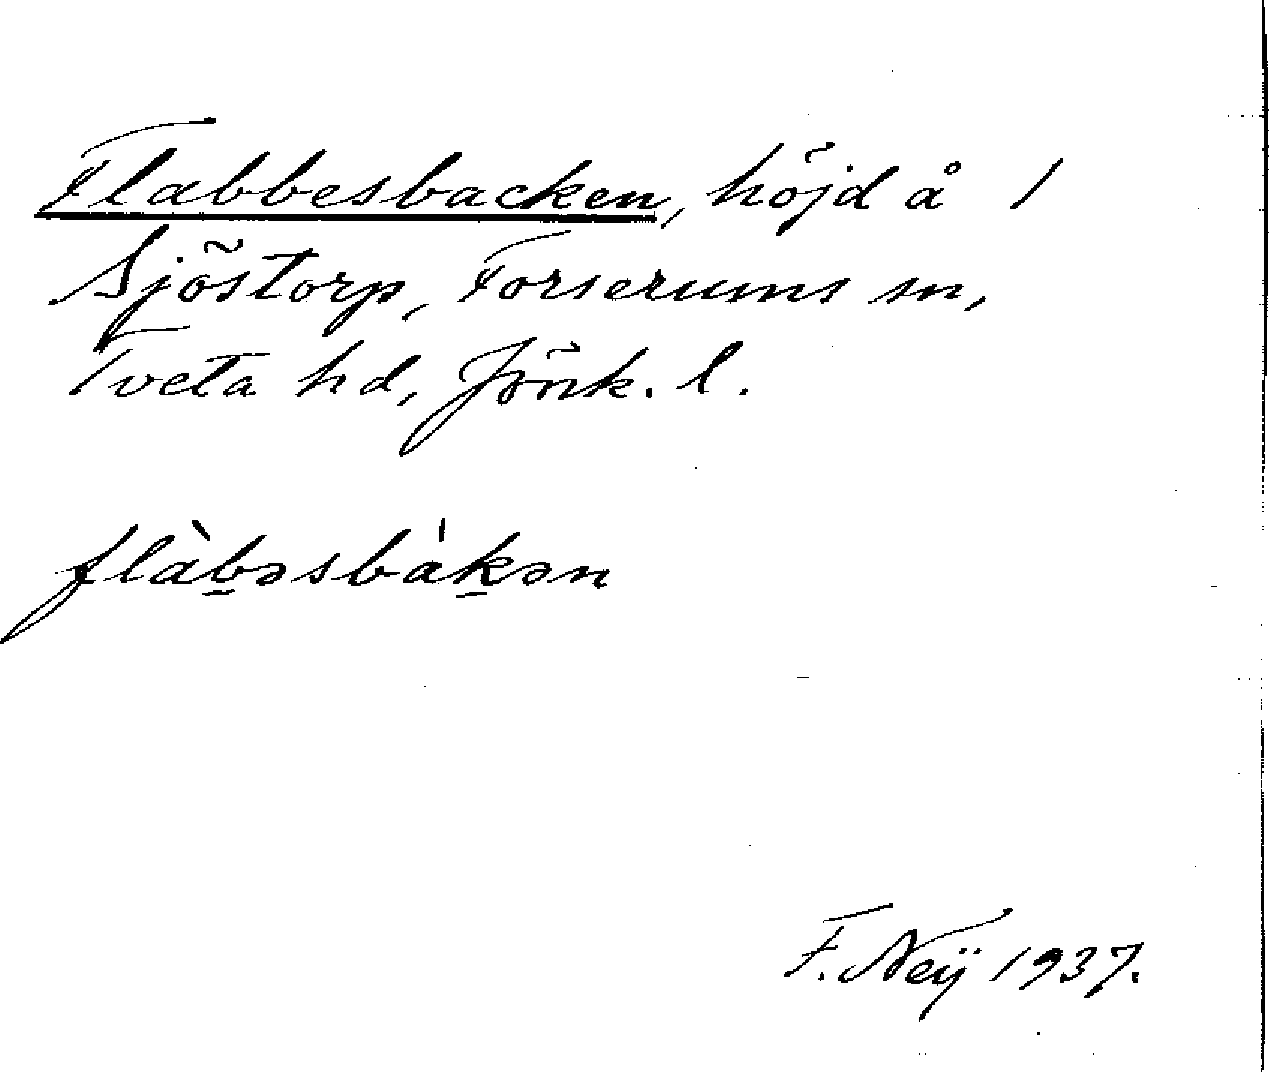 Flabbesbacken, höjd å 1
Sjöstorp, Forserums sn,
Tveta hd, Jönk. l.
flàb̠əsbàk̠ən
F. Neÿ 1937.